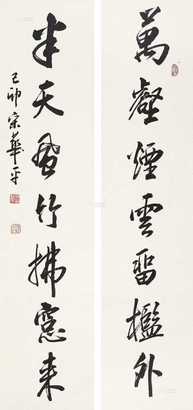 萬壑煙雲留檻外
半天風竹拂窓来
己卯宋華平